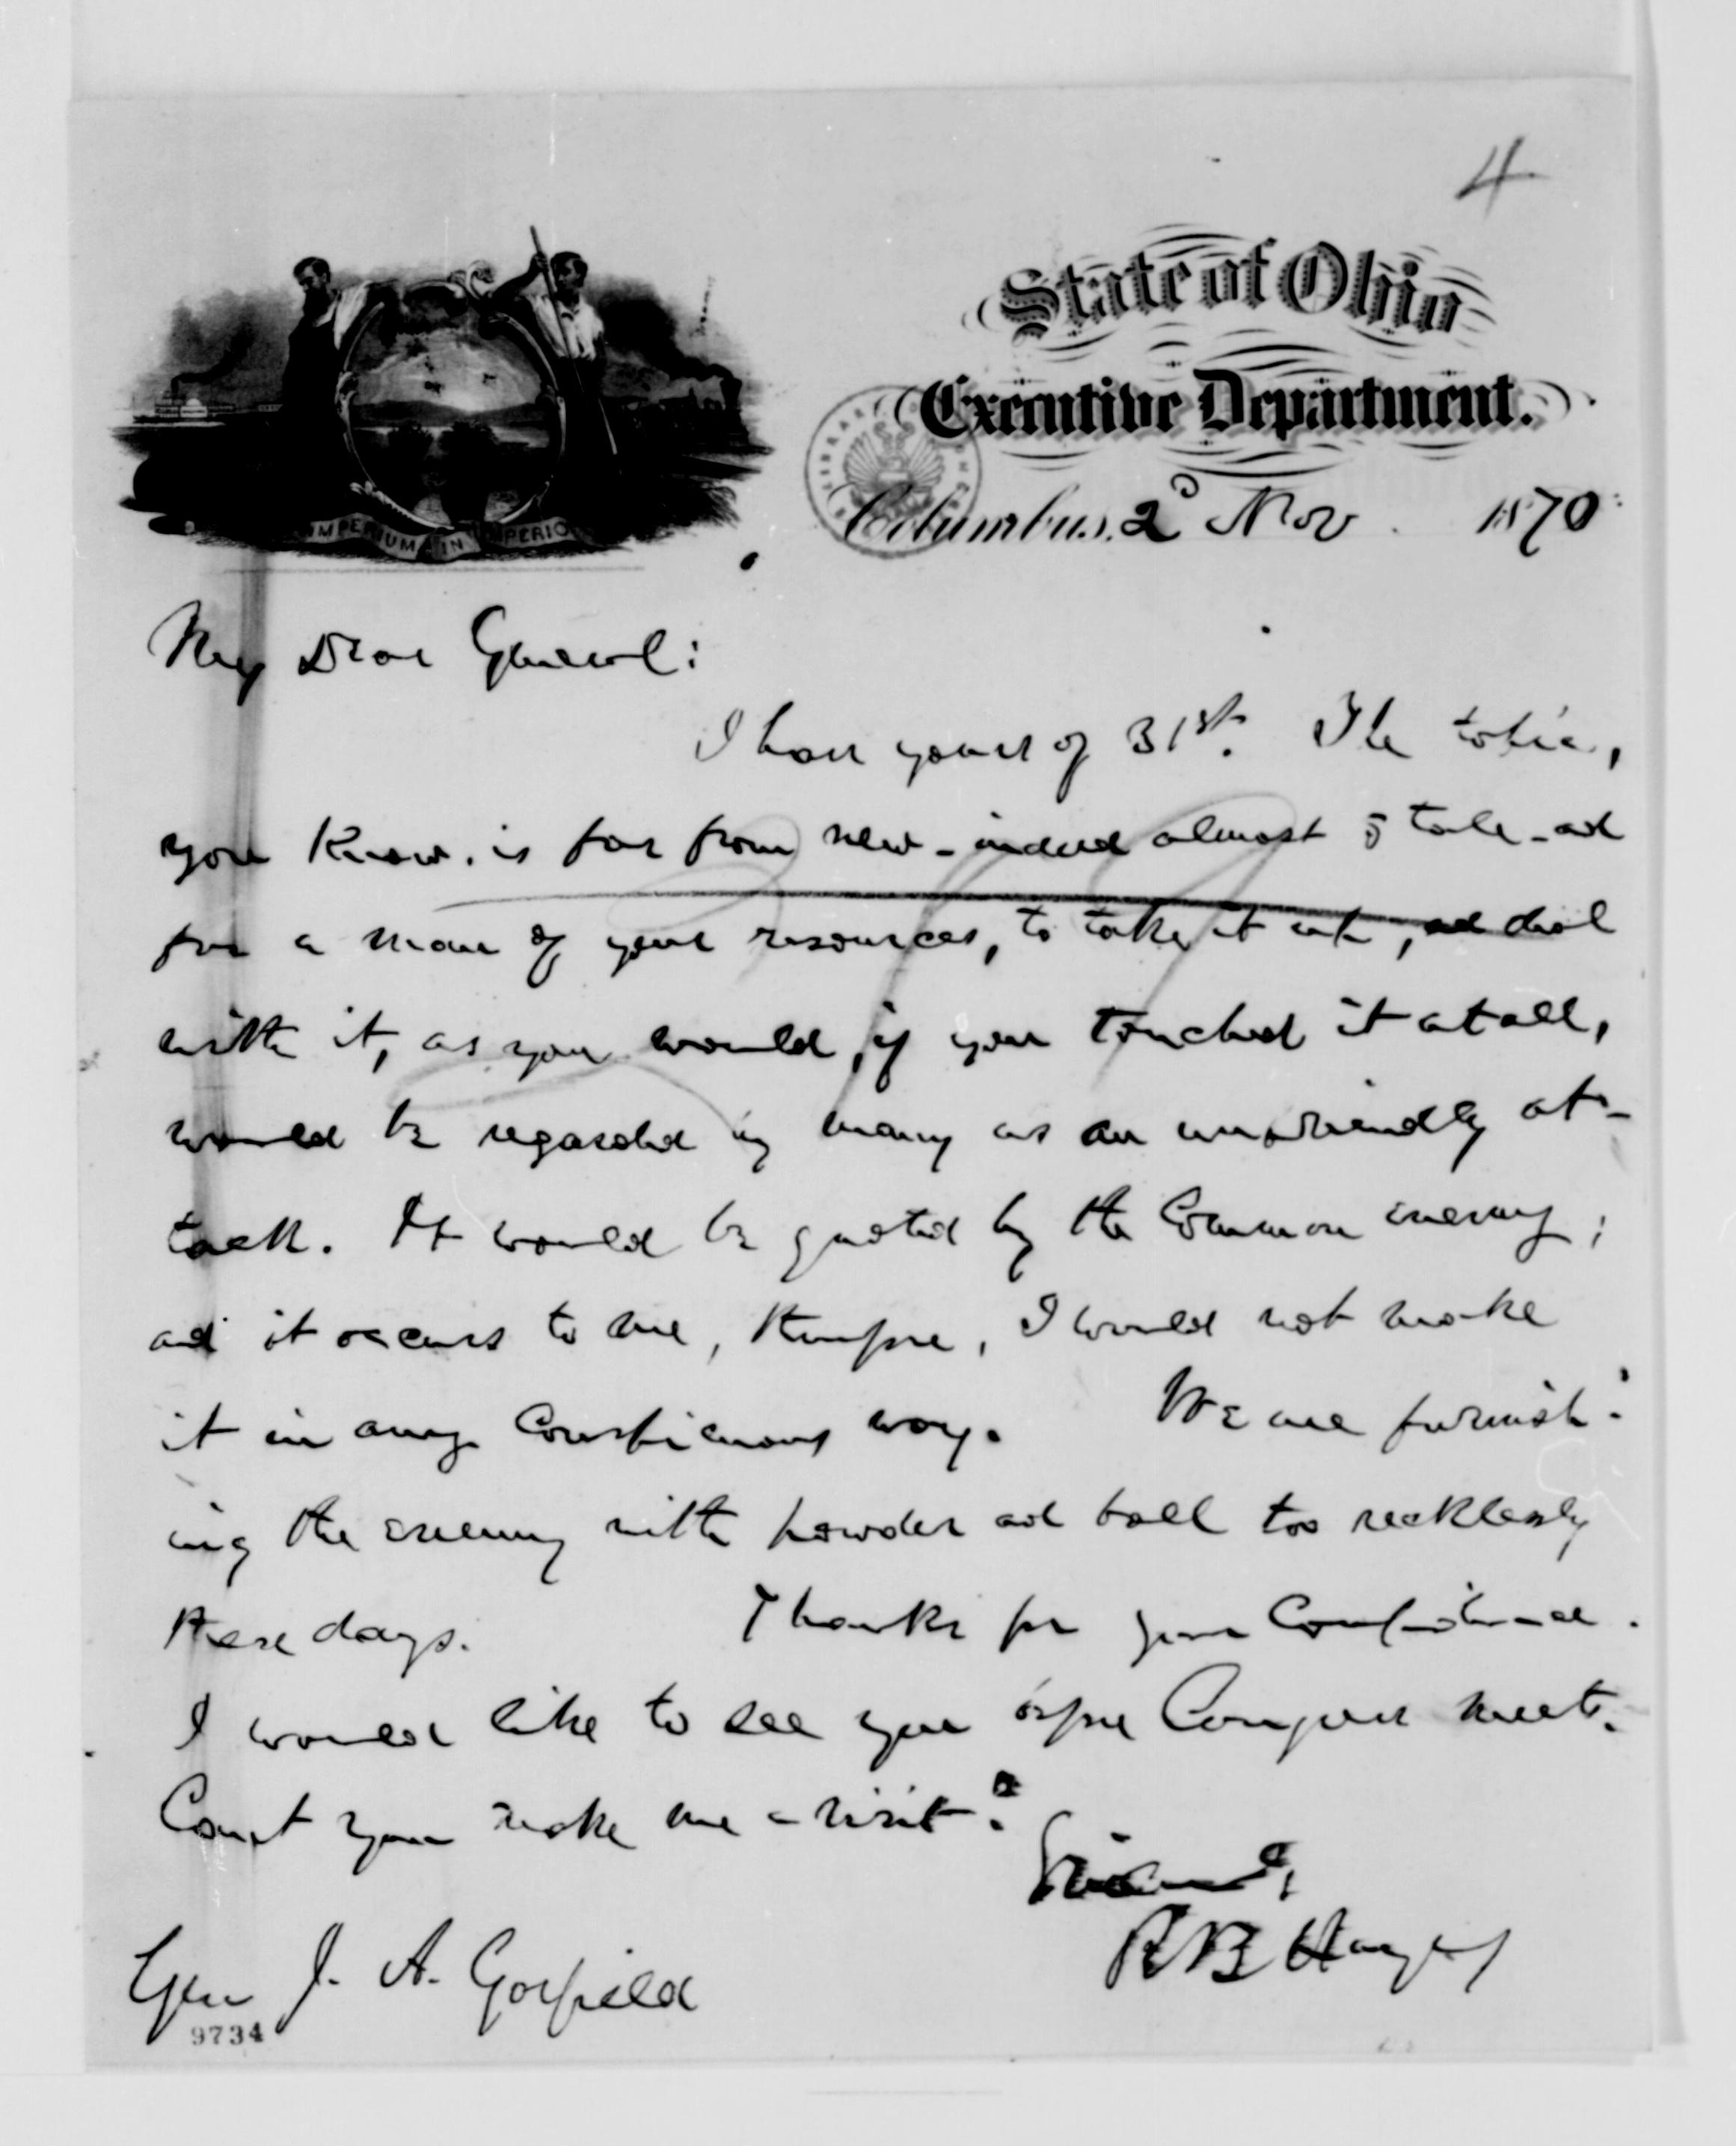 4
State of Ohio
Executive Department.
Columbus, 2d Nov 1870
IMPERIUM IN IMPERIO
My Dear General:
I have yours of 31st. The topic,
you know, is far from new - indeed almost stale - and
for a man of your resources, to take it up, and deal
with it, as you would, if you touched it at all,
would be regarded by many as an unfriendly at-
tack. It would be quoted by the Common enemy;
and it occurs to me, therefore, I would not make
it in any Conspicuous way. We are furnish-
ing the enemy with powder and ball too recklessly
these days. Thanks for your Confidence.
I would like to see you before Congress meets.
Cant you make me a visit?
Sincerely,
R B Hayes
Gen J. A. Garfield
9734